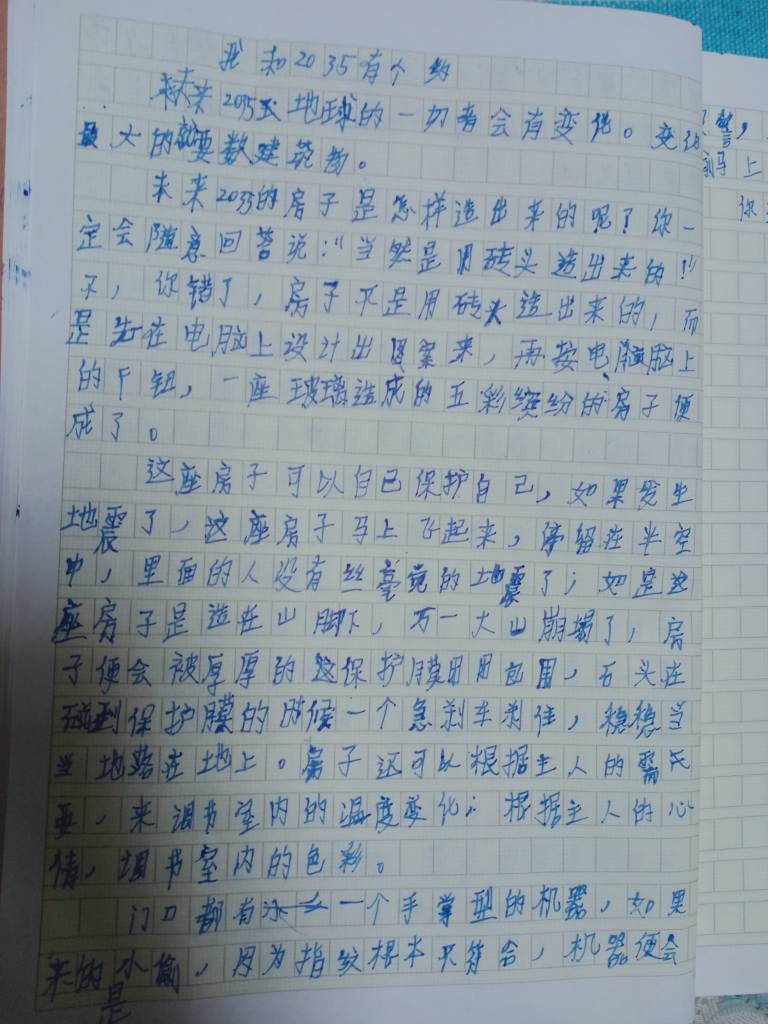 我和2035有个约
未来2035年地球的一切都会有变化。变化
最大的就要数建筑物。
未来2035的房子是怎样造出来的呢？你一
定会随意回答说：“当然是用砖头造出来的！”
不，你错了，房子不是用砖头造出来的，而
是先在电脑上设计出图案来，再按电脑上
的下钮，一座玻璃造成的五彩缤纷的房子便
成了。
这座房子可以自己保护自己，如果发生
地震了，这座房子马上飞起来，停留在半空
中，里面的人没有丝毫觉的地震了；如是这
座房子是造在山脚下，万一大山崩塌了，房
子便会被厚厚的这保护膜团团包围，石头在
碰到保护膜的时候一个急刹车刹住，稳稳当
当地落在地上。房子还可以根据主人的需
要，来调节室内的温度变化；根据主人的心
情，调节室内的色彩。
门口都有一个手掌型的机器，如果
来的是小偷，因为指纹根本不符合，机器便会
警，
马上
你